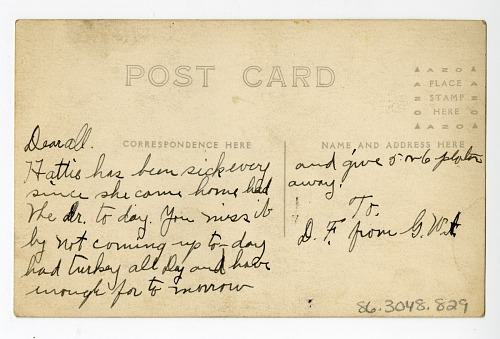 POST CARD
AZO
PLACE
STAMP
HERE
AZO
CORRESPONDENCE HERE
NAME AND ADDRESS HERE
Dear all.
Hattie has been sick every
since she came home had
the dr. to day. You miss it
by not coming up to-day
had turkey all Day and have
enough for to morrow
and give 5 or 6 plates
away.
To.
D. F. from G. W. A.
86.3048.829